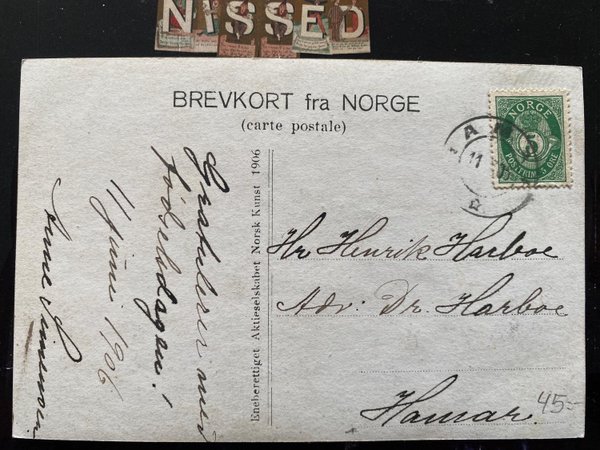 NISSED
BREVKORT fra NORGE
(carte postale)
NORGE
5
POSTFRIM. 5 ØRE
11
Gratulerer med
fødselsdagen!
11 juni 1906
Eneberettiget Aktieselskabet Norsk Kunst 1906
Hr Henrik Harboe
Adv: Dr. Harboe
Hamar
45:-